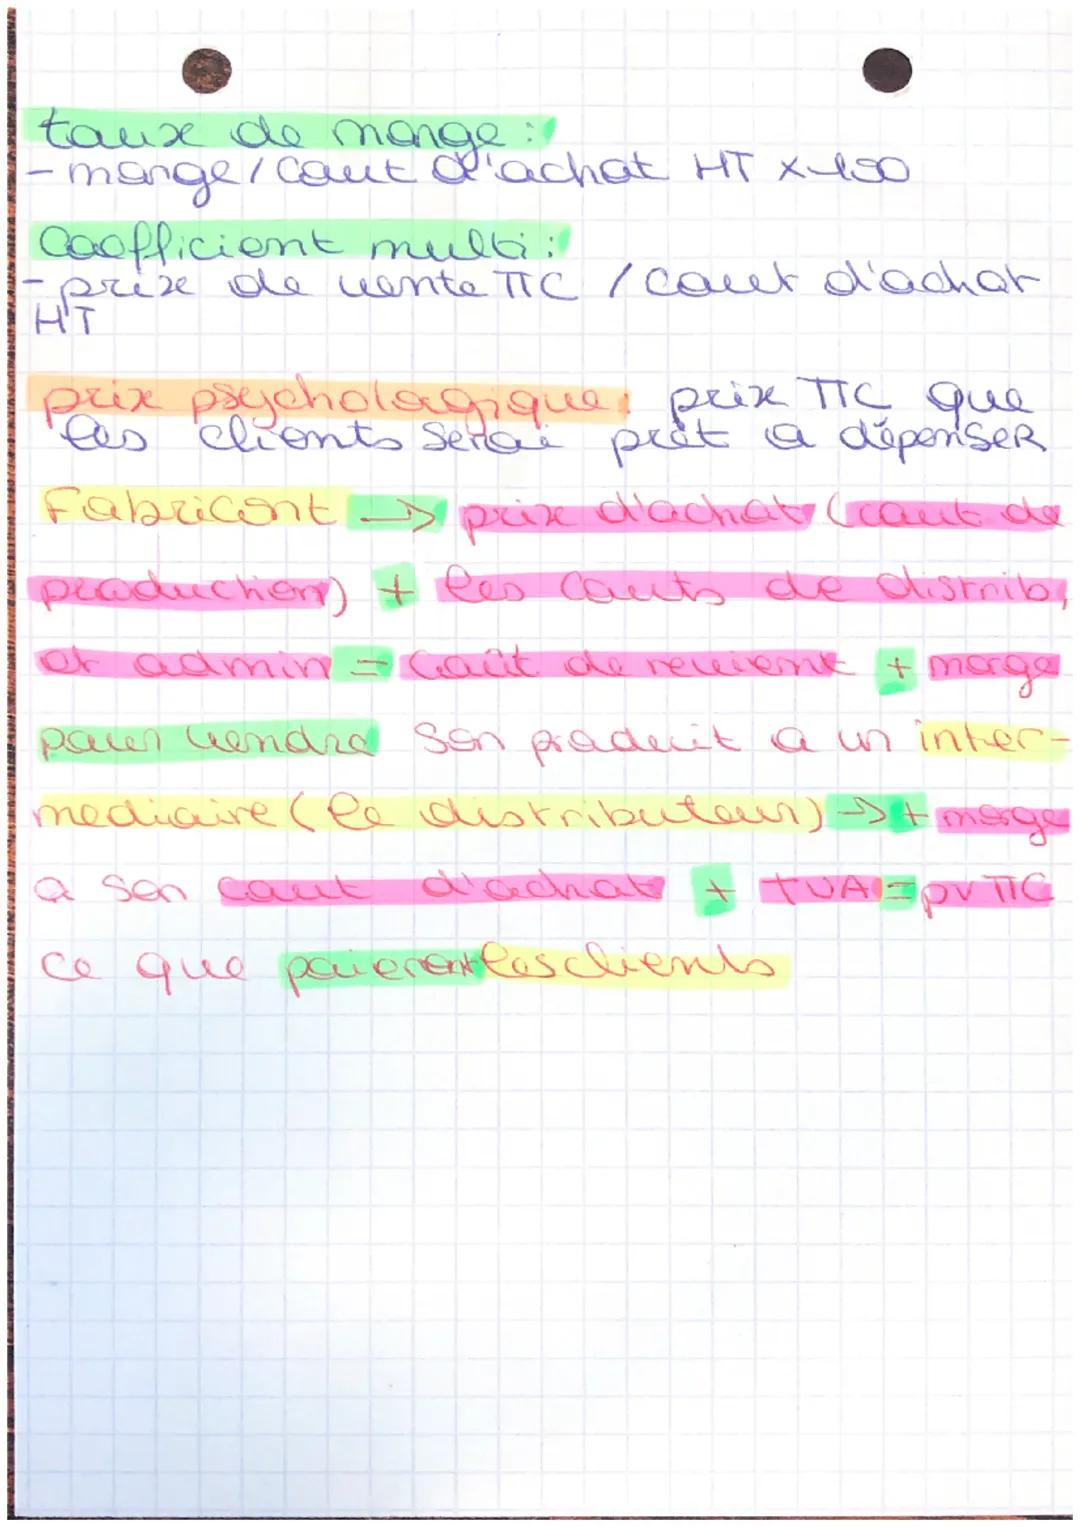 taux de marge :
- marge / coût d'achat HT x 100
Coefficient multi :
- prix de vente TTC / cout d'achat
HT
prix psychologique : prix TTC que
les clients serai prêt a dépenser
Fabricant → prix d'achat (cout de
production) + les couts de distrib,
et admin = Coût de revient + marge
pour vendre son produit a un inter-
mediaire (le distributeur) → + marge
a son cout d'achat + TVA = pv TTC
ce que paieront les clients